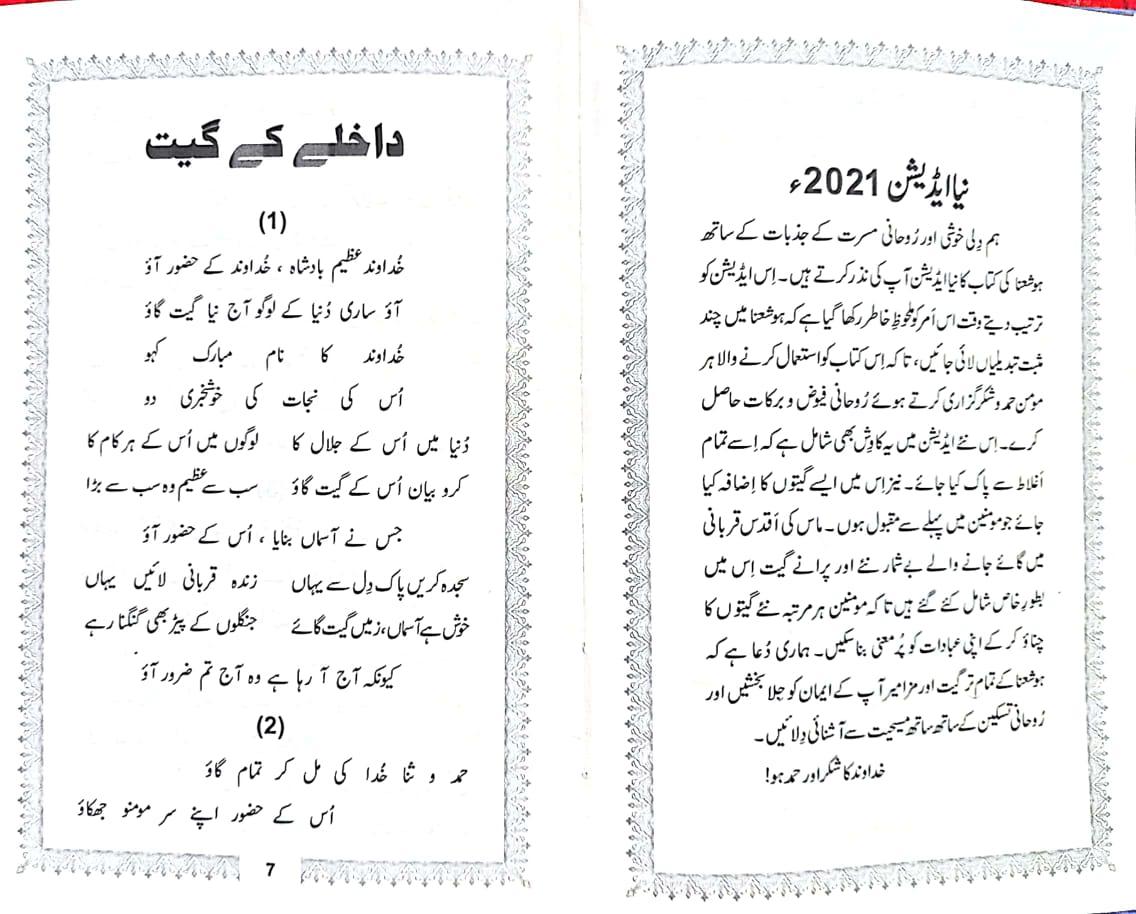 نیا ایڈیشن 2021ء
ہم دِلی خوشی اور رُوحانی مسرت کے جذبات کے ساتھ
ہوشعنا کی کتاب کا نیا ایڈیشن آپ کی نذر کرتے ہیں۔ اِس ایڈیشن کو
ترتیب دیتے وقت اس اَمر کو ملحوظِ خاطر رکھا گیا ہے کہ ہوشعنا میں چند
مثبت تبدیلیاں لائی جائیں، تاکہ اِس کتاب کو استعمال کرنے والا ہر
مومن حمد و شکر گزاری کرتے ہوئے رُوحانی فیوض و برکات حاصل
کرے۔ اِس نئے ایڈیشن میں یہ کاوِش بھی شامل ہے کہ اِسے تمام
اَغلاط سے پاک کیا جائے۔ نیز اِس میں ایسے گیتوں کا اِضافہ کیا
جائے جو مومنین میں پہلے سے مقبول ہوں۔ ماس کی اَقدس قربانی
میں گائے جانے والے بے شمار نئے اور پرانے گیت اِس میں
بطورِ خاص شامل کئے گئے ہیں تاکہ مومنین ہر مرتبہ نئے گیتوں کا
چناؤ کر کے اپنی عبادات کو پُر معنی بنا سکیں۔ ہماری دُعا ہے کہ
ہوشعنا کے تمام تر گیت اور مزامیر آپ کے ایمان کو جِلا بخشیں اور
رُوحانی تسکین کے ساتھ ساتھ مسیحیت سے آشنائی دِلائیں۔
خداوند کا شکر اور حمد ہو!
داخلے کے گیت
(1)
خُداوند عظیم بادشاہ ، خُداوند کے حضور آؤ
آؤ ساری دُنیا کے لوگو آج نیا گیت گاؤ
خُداوند کا نام مبارک کہو
اُس کی نجات کی خوشخبری دو
دُنیا میں اُس کے جلال کا لوگوں میں اُس کے ہر کام کا
کرو بیان اُس کے گیت گاؤ سب سے عظیم وہ سب سے بڑا
جس نے آسماں بنایا ، اُس کے حضور آؤ
سجدہ کریں پاک دِل سے یہاں زندہ قربانی لائیں یہاں
خوش ہے آسماں، زمیں گیت گائے جنگلوں کے پیڑ بھی گنگنا رہے
کیونکہ آج آ رہا ہے وہ آج تم ضرور آؤ
(2)
حمد و ثنا خُدا کی مل کر تمام گاؤ
اُس کے حضور اپنے سر مومنو جھکاؤ
7